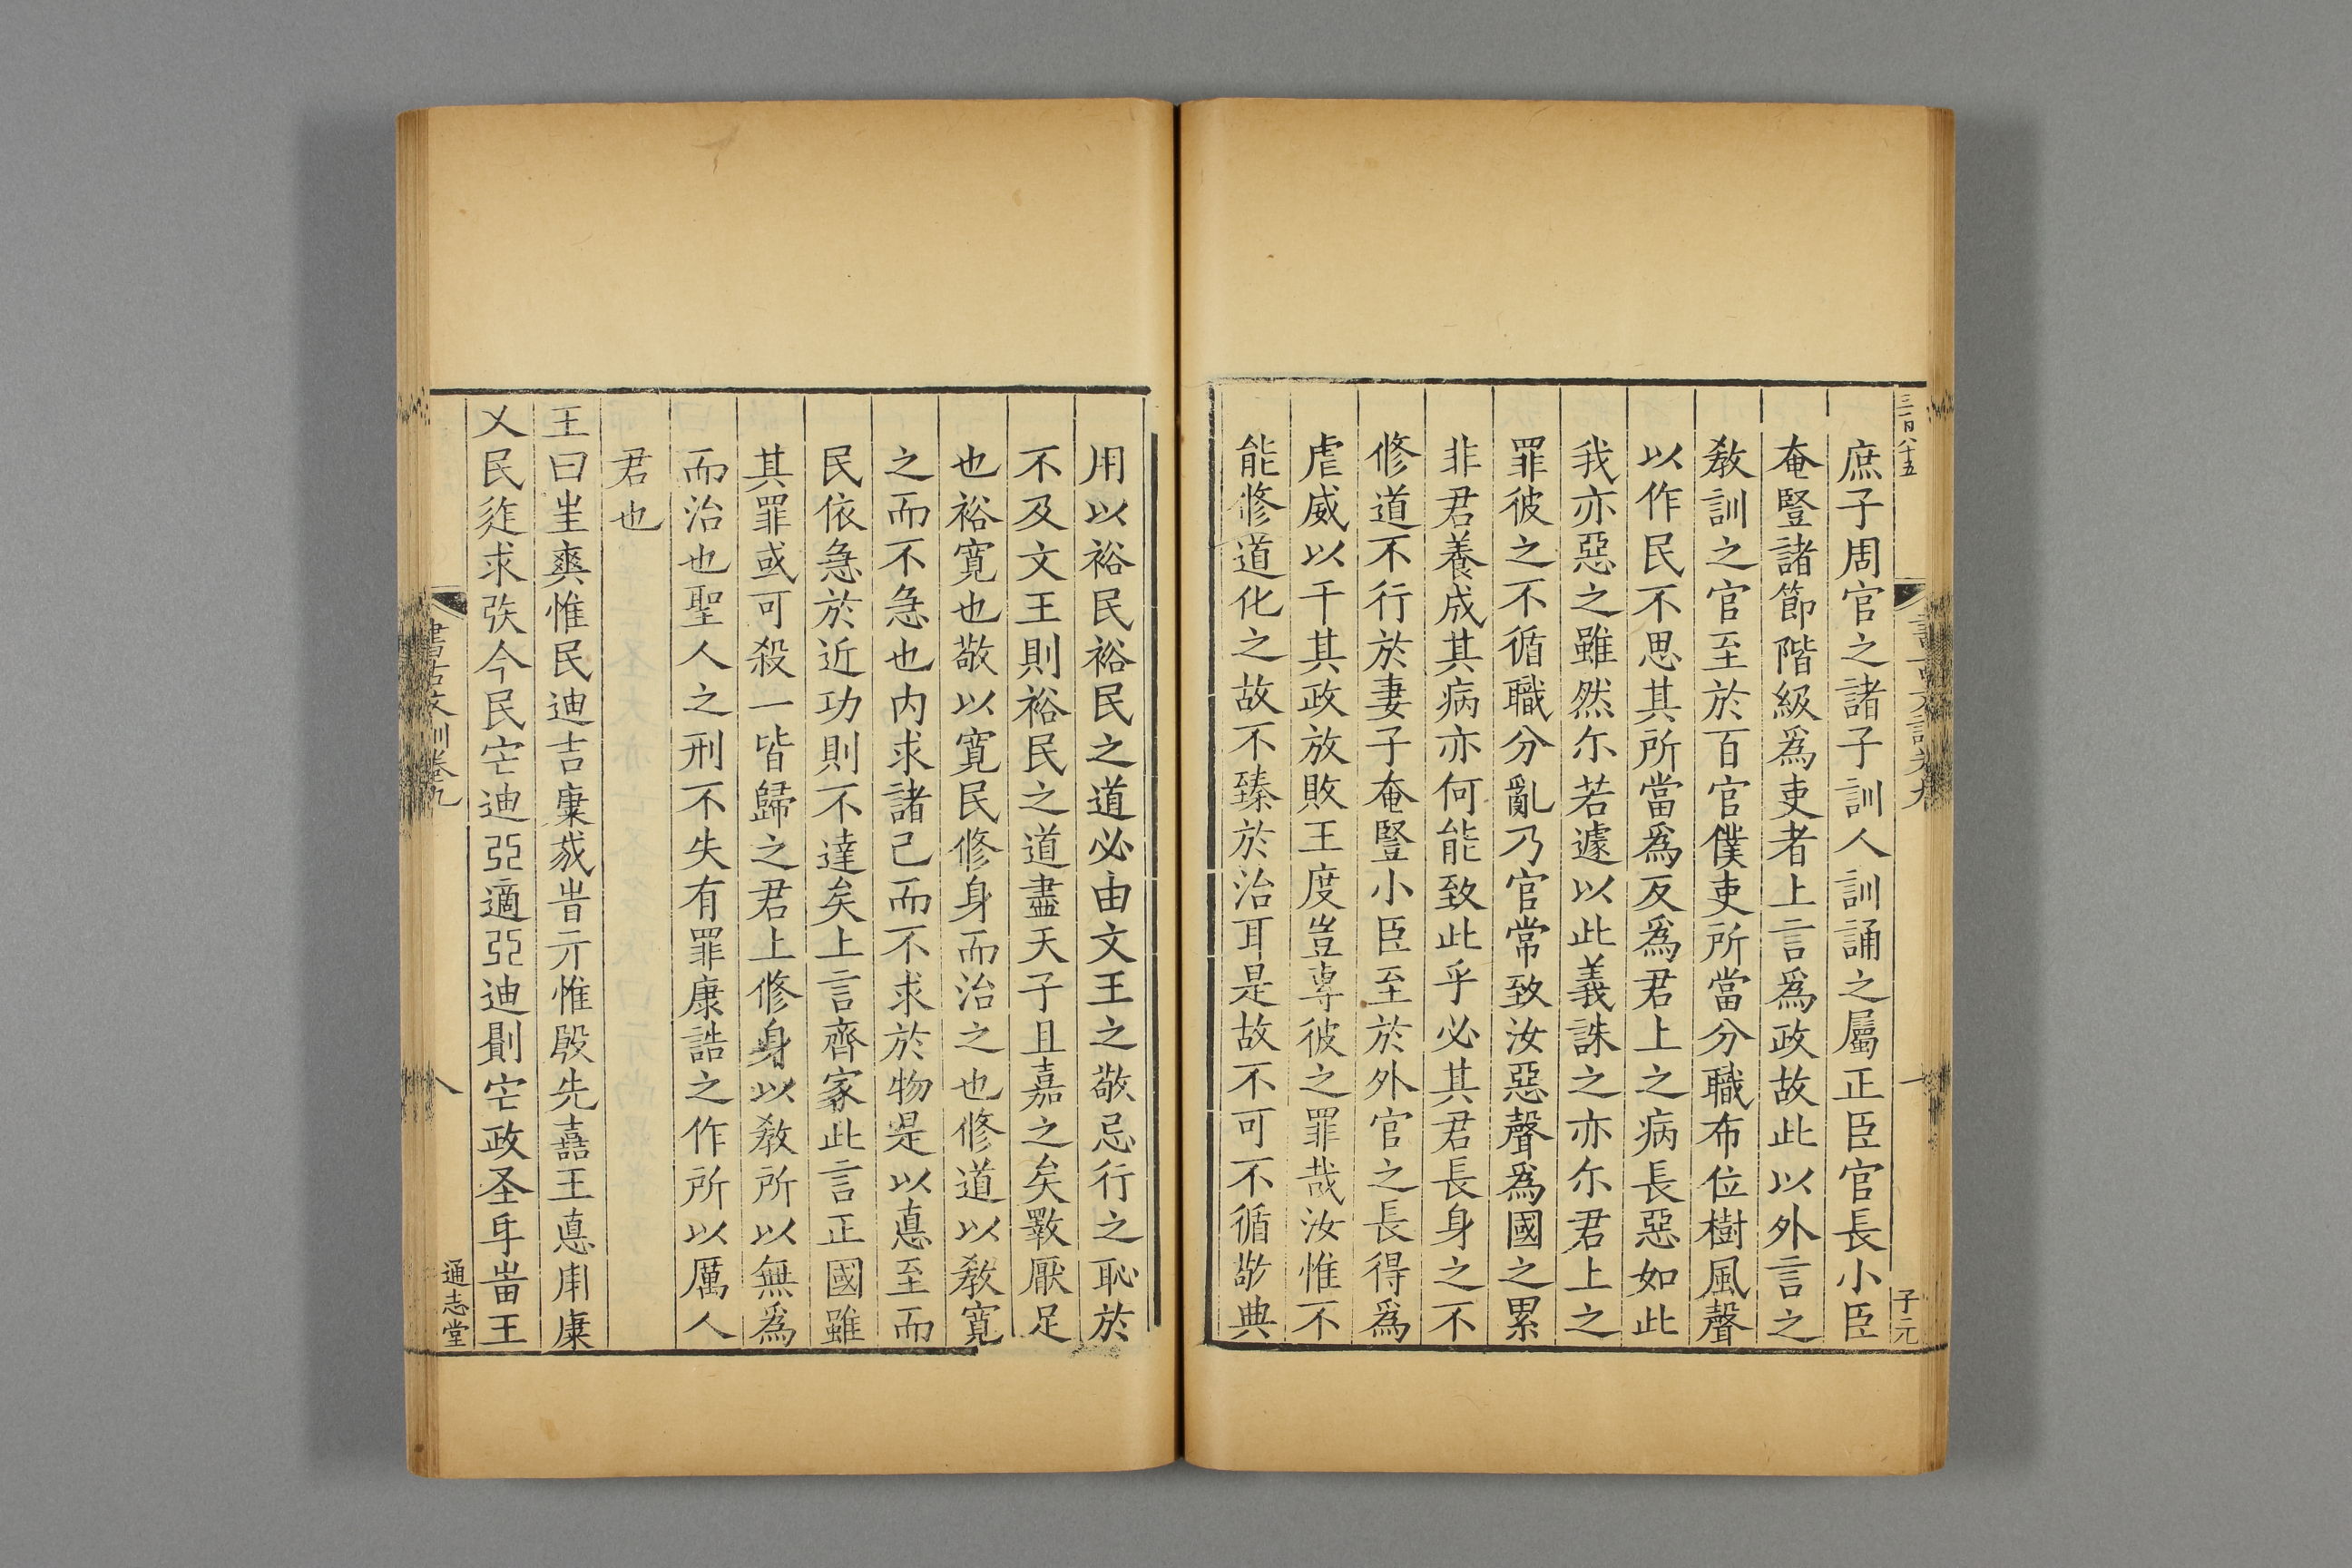 三百八十五
子元
庶子周官之諸子訓人訓誦之屬正臣官長小臣
奄豎諸節階級爲吏者上言爲政故此以外言之
敎訓之官至於百官僕吏所當分職布位樹風聲
以作民不思其所當爲反爲君上之病長惡如此
我亦惡之雖然尒若遽以此義誅之亦尒君上之
罪彼之不循職分亂乃官常致汝惡聲爲國之累
非君養成其病亦何能致此乎必其君長身之不
修道不行於妻子奄豎小臣至於外官之長得爲
虐威以干其政放敗王度豈專彼之罪哉汝惟不
能修道化之故不臻於治耳是故不可不循敬典
用以裕民裕民之道必由文王之敬忌行之恥於
不及文王則裕民之道盡天子且嘉之矣斁厭足
也裕寛也敬以寛民修身而治之也修道以敎寛
之而不急也内求諸己而不求於物是以惪至而
民依急於近功則不達矣上言齊家此言正國雖
其罪或可殺一皆歸之君上修身以敎所以無爲
而治也聖人之刑不失有罪康誥之作所以厲人
君也
王曰𡉚爽惟民迪吉康𢦏旹亓惟殷先嚞王惪𤰃康
乂民逑求㢤今民宅迪𢀖適𢀖迪𠟭宅政圣𠂔𤰕王
書古文訓卷九
八
通志堂